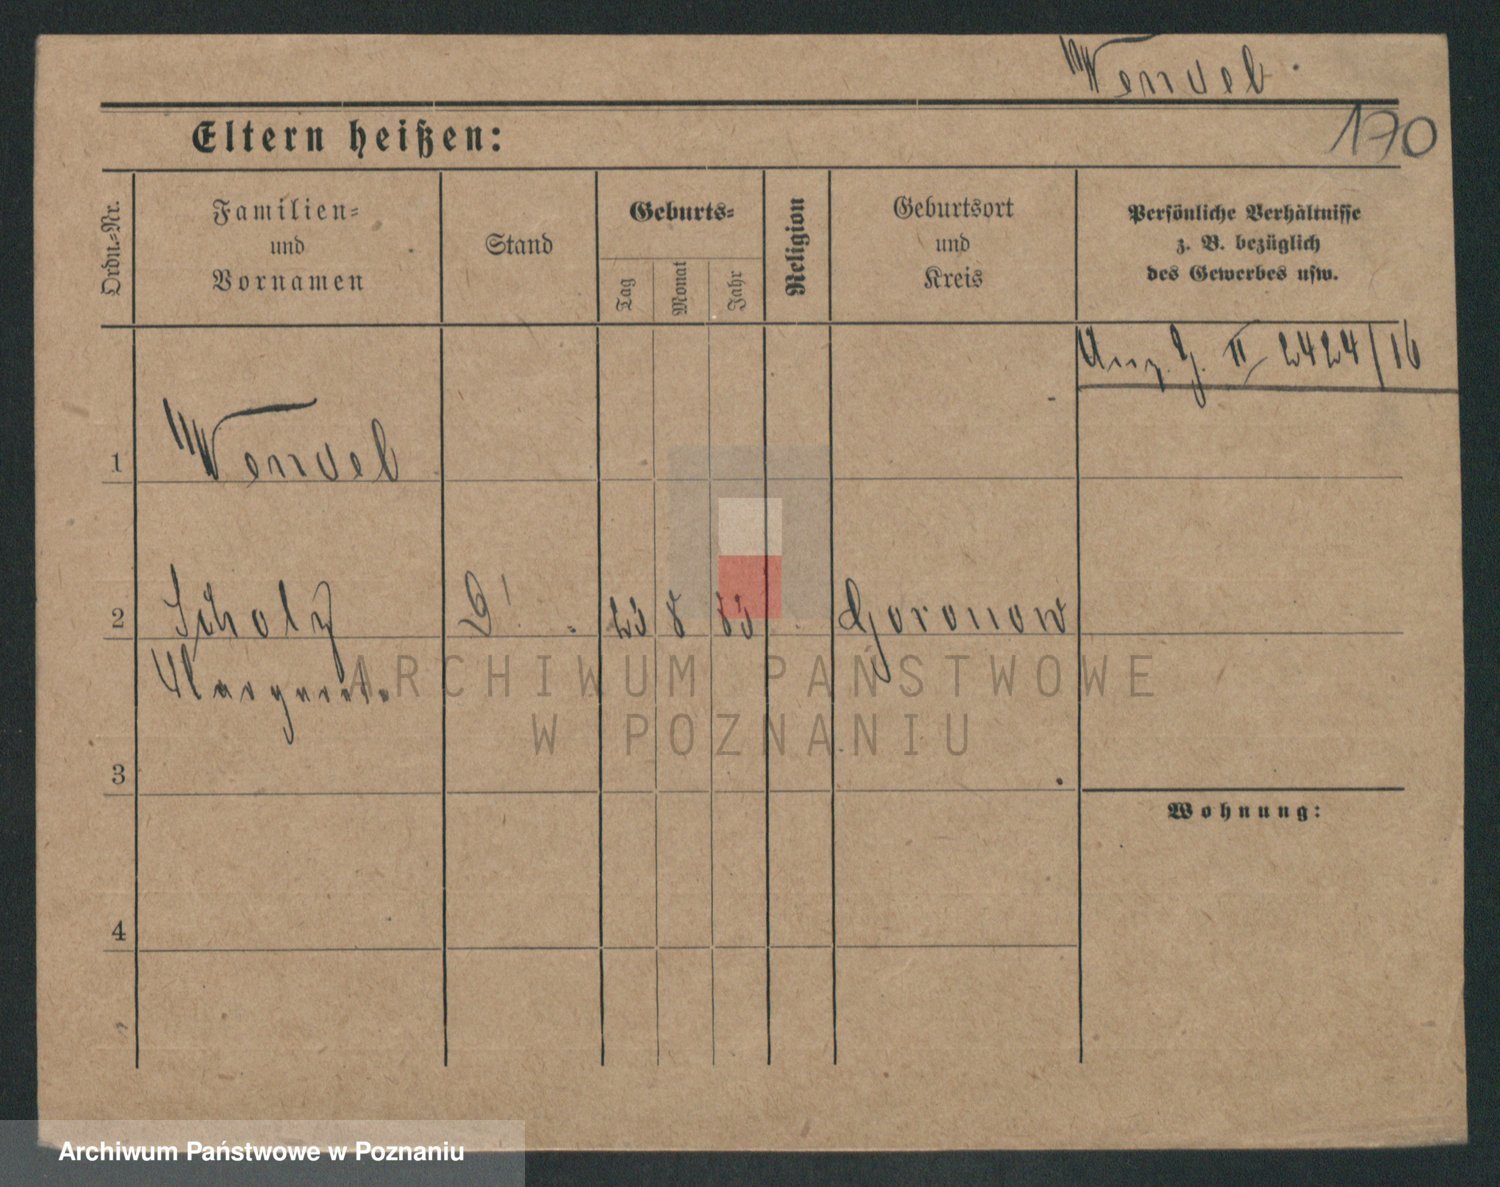 Wenveb.
170
Eltern heißen:
Ordn.-Nr.
Familien-
und
Vornamen
Stand
Geburts-
Tag
Monat
Jahr
Religion
Geburtsort
und
Kreis
Persönliche Verhältnisse
z. B. bezüglich
des Gewerbes usw.
II 2424/16
1
2 Scholz 23 8 83
3
4
Wohnung:
ARCHIWUM PAŃSTWOWE
W POZNANIU
Archiwum Państwowe w Poznaniu